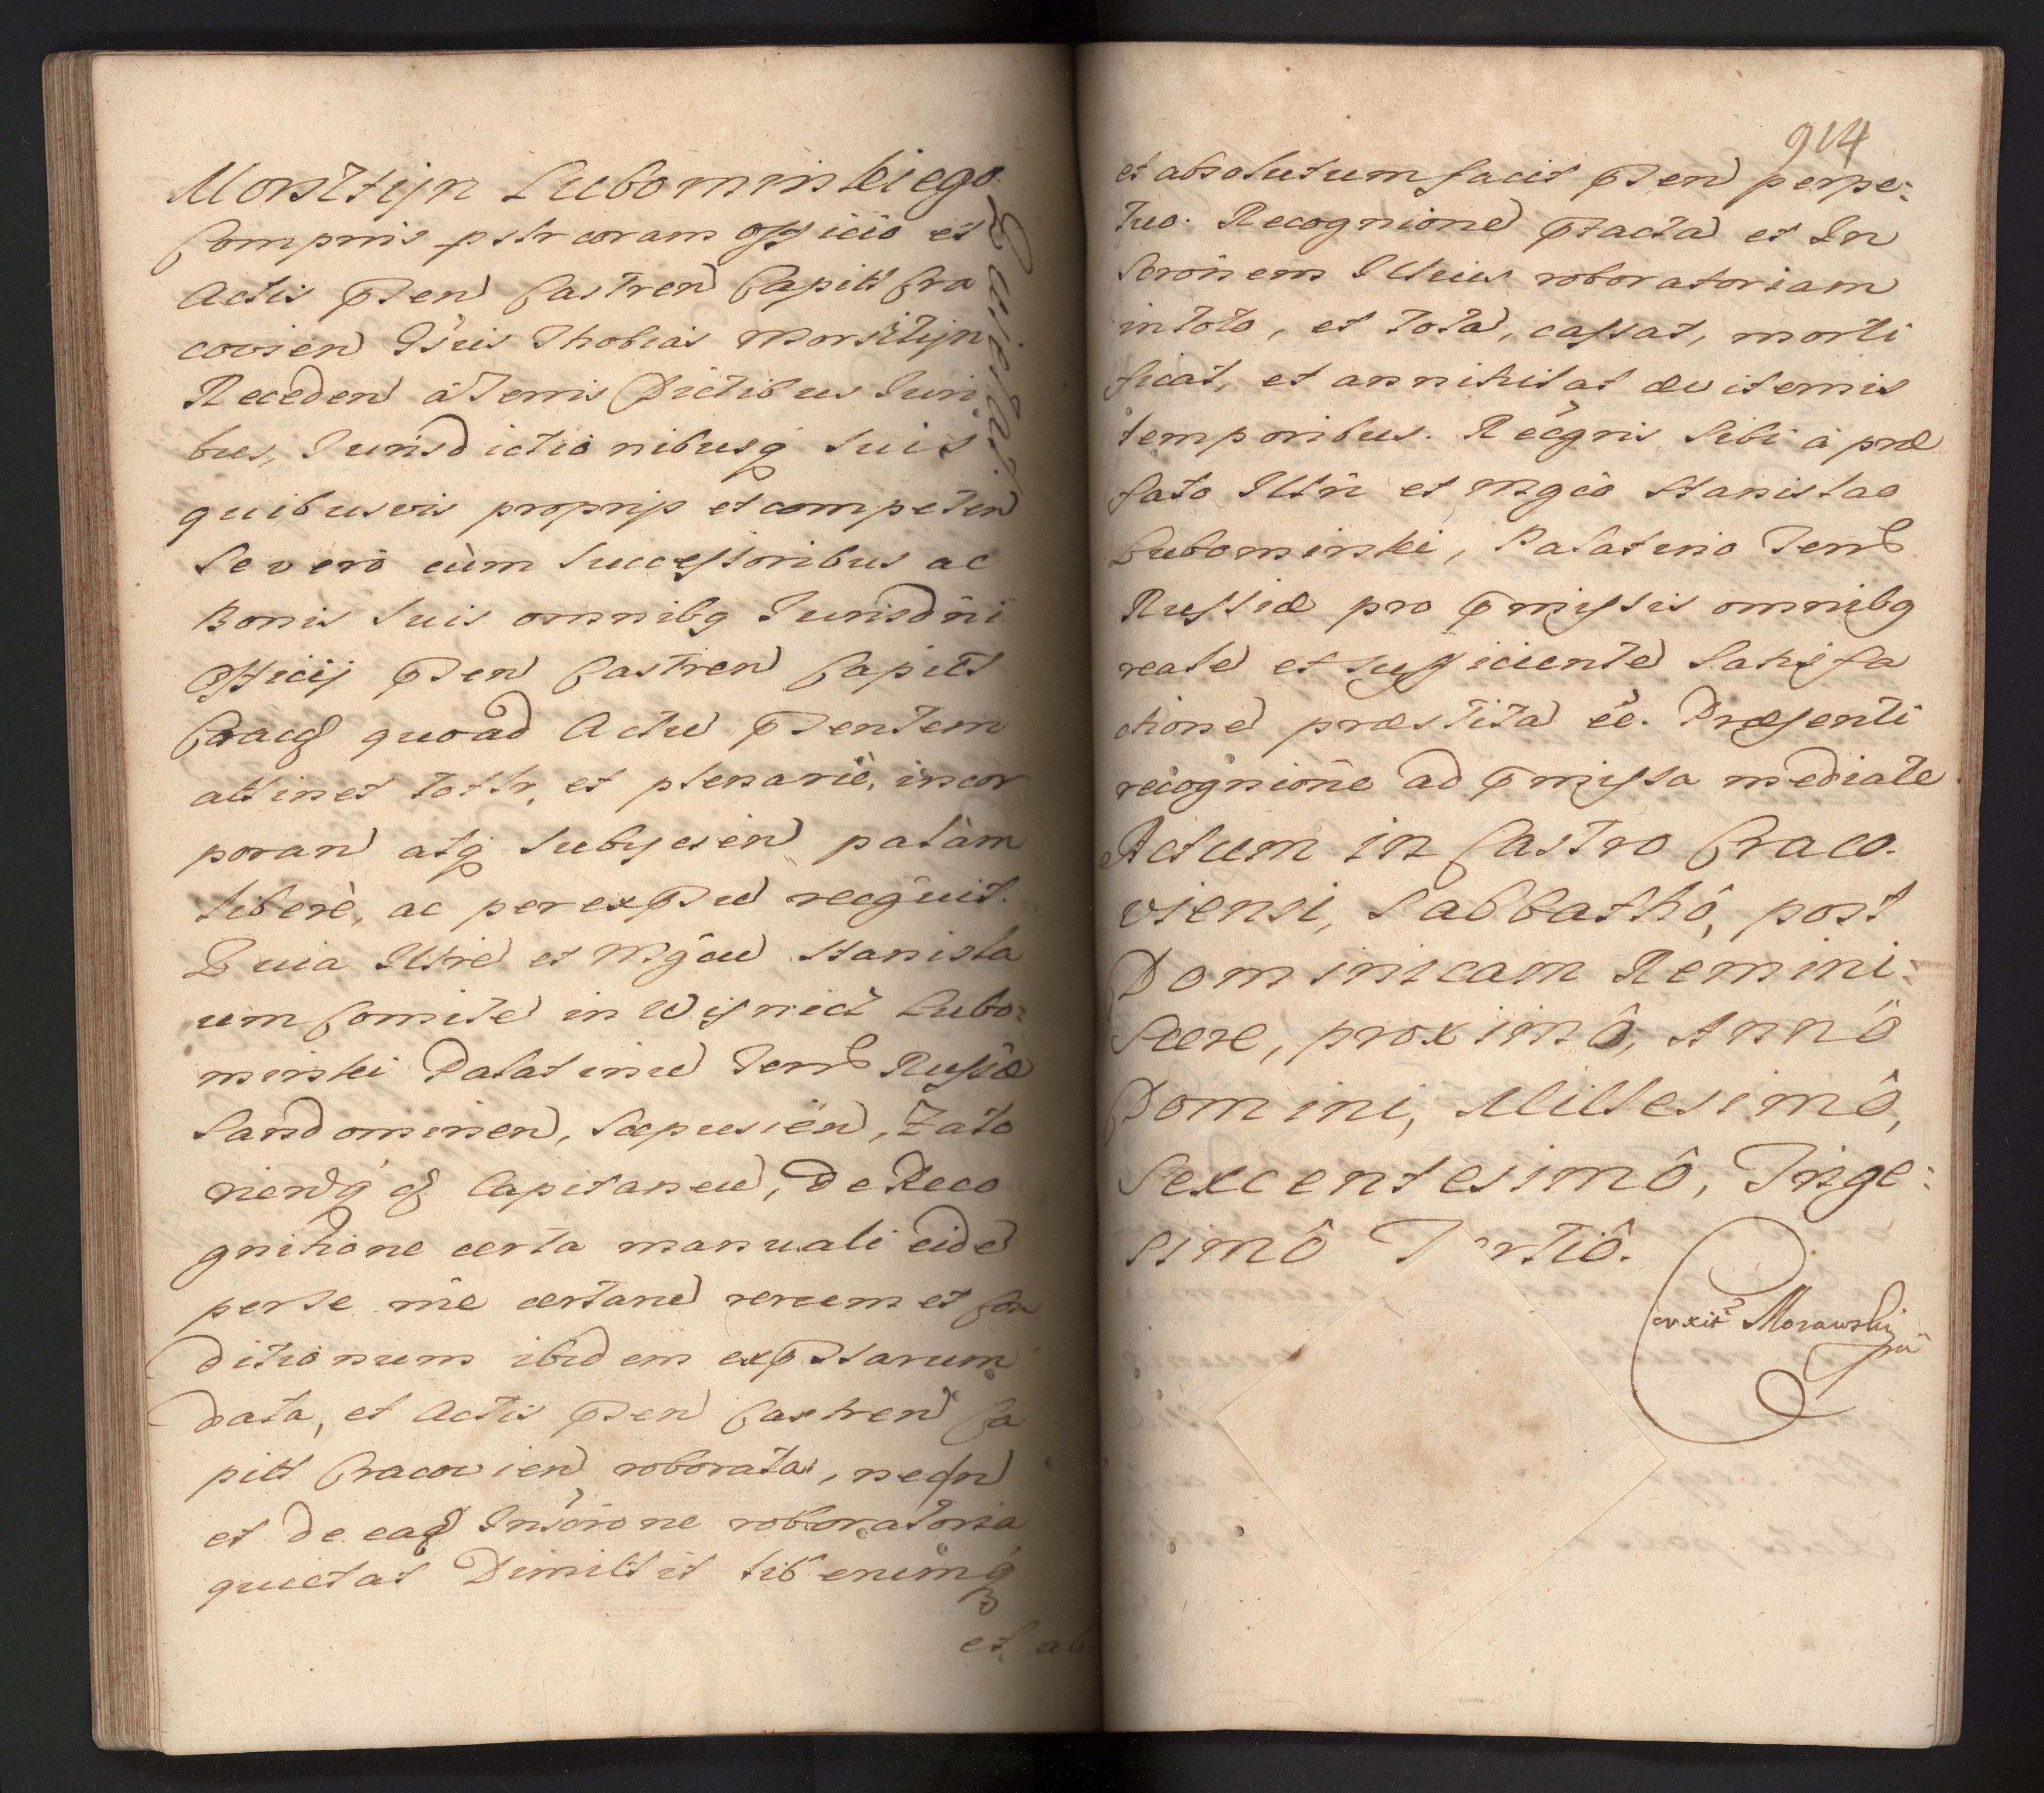 Morsztijn Lubomirskiego
quietat
Comprns psltr coram officio et
Actis pnten Castren Capitl Cra
covien Gsus Thobias Morsztijn
Receden a Terris Dictibus Iuri
bus, Iurisdictionibusq suis
quibusvis proprijs et competen
se vero cùm successoribus ac
Bonis suis omnibq Iurisdni
Officij pnten Castren Capitl
Cracq quoad Actu pntentem
attinet totltr, et plenariè, incor
poran atq subijcien palàm
liberè, ac per expssu recgnit.
Quia Illtre et Mgcu Stanisla
um Comite in Wisnicz Lubo:
mirski Palatinu Terr Russiæ
Sandomirien, Scepusien, Zato
rienq q Capitaneu, de Reco
gnitione certa manuali eide
per se rne certaru rerum et Con
ditionum ibidem expssarum
data, et Actis pnten Castren Ca
pitl Cracovien roborata, necn
et de eadq Inscrione roboratoria
quietat Dimittit liberumq
et ab
914
et absolutum facit pnten perpe:
tuo. Recognione ptacta et In
scronem Illius roboratoriam
in toto, et tota, cassat, morti
ficat, et annihilat æviternis
temporibus. Recgns sibi à præ
fato Illri et Mgco Stanislao
Lubomirski, Palatino Terr
Russiæ pro pmissis omnibq
reale et sufficiente satisfa
ctione præstita ee. Præsenti
recognione ad pmissa mediate
Actum in Castro Craco-
viensi, Sabbathô, post
Dominicam Remini:
scere, proximô, Annô
Domini, Millesimô,
Sexcentesimô, Trige:
simô Tertiô.
Morawski